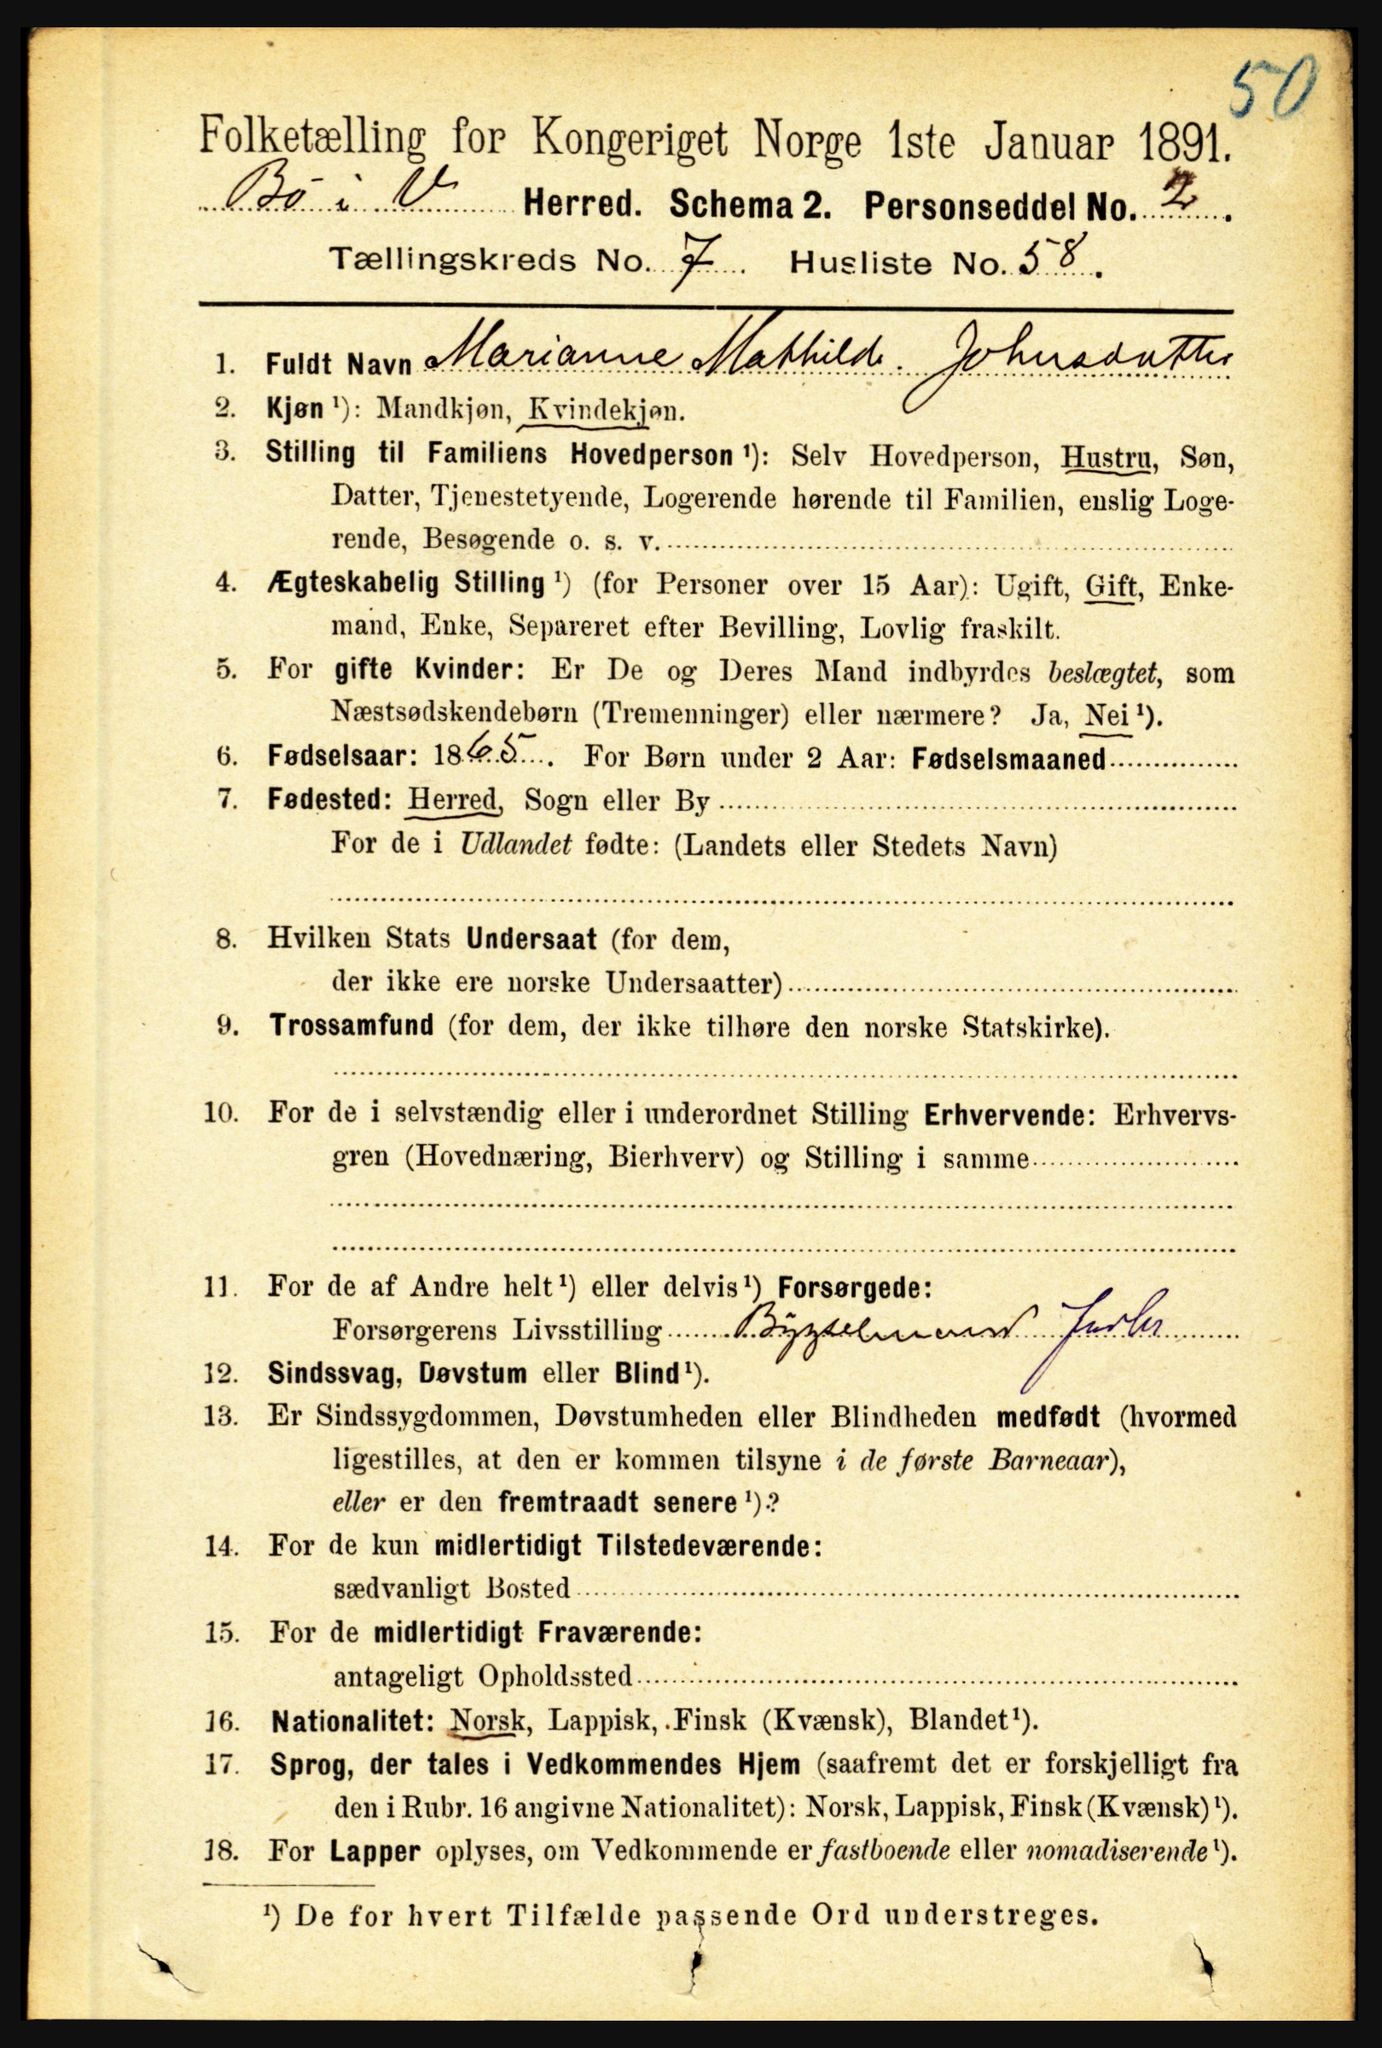 50
Folketælling for Kongeriget Norge 1ste Januar 1891.
Bö i V Herred. Schema 2. Personseddel No. 2.
Tællingskreds No. 7. Husliste No. 58.
1. Fuldt Navn Marianne Mathilde Johnsdatter
2. Kjøn ¹): Mandkjøn, Kvindekjøn.
3. Stilling til Familiens Hovedperson ¹): Selv Hovedperson, Hustru, Søn,
Datter, Tjenestetyende, Logerende hørende til Familien, enslig Loge-
rende, Besøgende o. s. v.
4. Ægteskabelig Stilling ¹) (for Personer over 15 Aar): Ugift, Gift, Enke-
mand, Enke, Separeret efter Bevilling, Lovlig fraskilt.
5. For gifte Kvinder: Er De og Deres Mand indbyrdes beslægtet, som
Næstsødskendebørn (Tremenninger) eller nærmere? Ja, Nei ¹).
6. Fødselsaar: 1865. For Børn under 2 Aar: Fødselsmaaned
7. Fødested: Herred, Sogn eller By
For de i Udlandet fødte: (Landets eller Stedets Navn)
8. Hvilken Stats Undersaat (for dem,
der ikke ere norske Undersaatter)
9. Trossamfund (for dem, der ikke tilhøre den norske Statskirke).
10. For de i selvstændig eller i underordnet Stilling Erhvervende: Erhvervs-
gren (Hovednæring, Bierhverv) og Stilling i samme
11. For de af Andre helt ¹) eller delvis ¹) Forsørgede:
Forsørgerens Livsstilling
12. Sindssvag, Døvstum eller Blind ¹).
13. Er Sindssygdommen, Døvstumheden eller Blindheden medfødt (hvormed
ligestilles, at den er kommen tilsyne i de første Barneaar),
eller er den fremtraadt senere ¹)?
14. For de kun midlertidigt Tilstedeværende:
sædvanligt Bosted
15. For de midlertidigt Fraværende:
antageligt Opholdssted
16. Nationalitet: Norsk, Lappisk, Finsk (Kvænsk), Blandet ¹).
17. Sprog, der tales i Vedkommendes Hjem (saafremt det er forskjelligt fra
den i Rubr. 16 angivne Nationalitet): Norsk, Lappisk, Finsk (Kvænsk) ¹).
18. For Lapper oplyses, om Vedkommende er fastboende eller nomadiserende ¹).
¹) De for hvert Tilfælde passende Ord understreges.